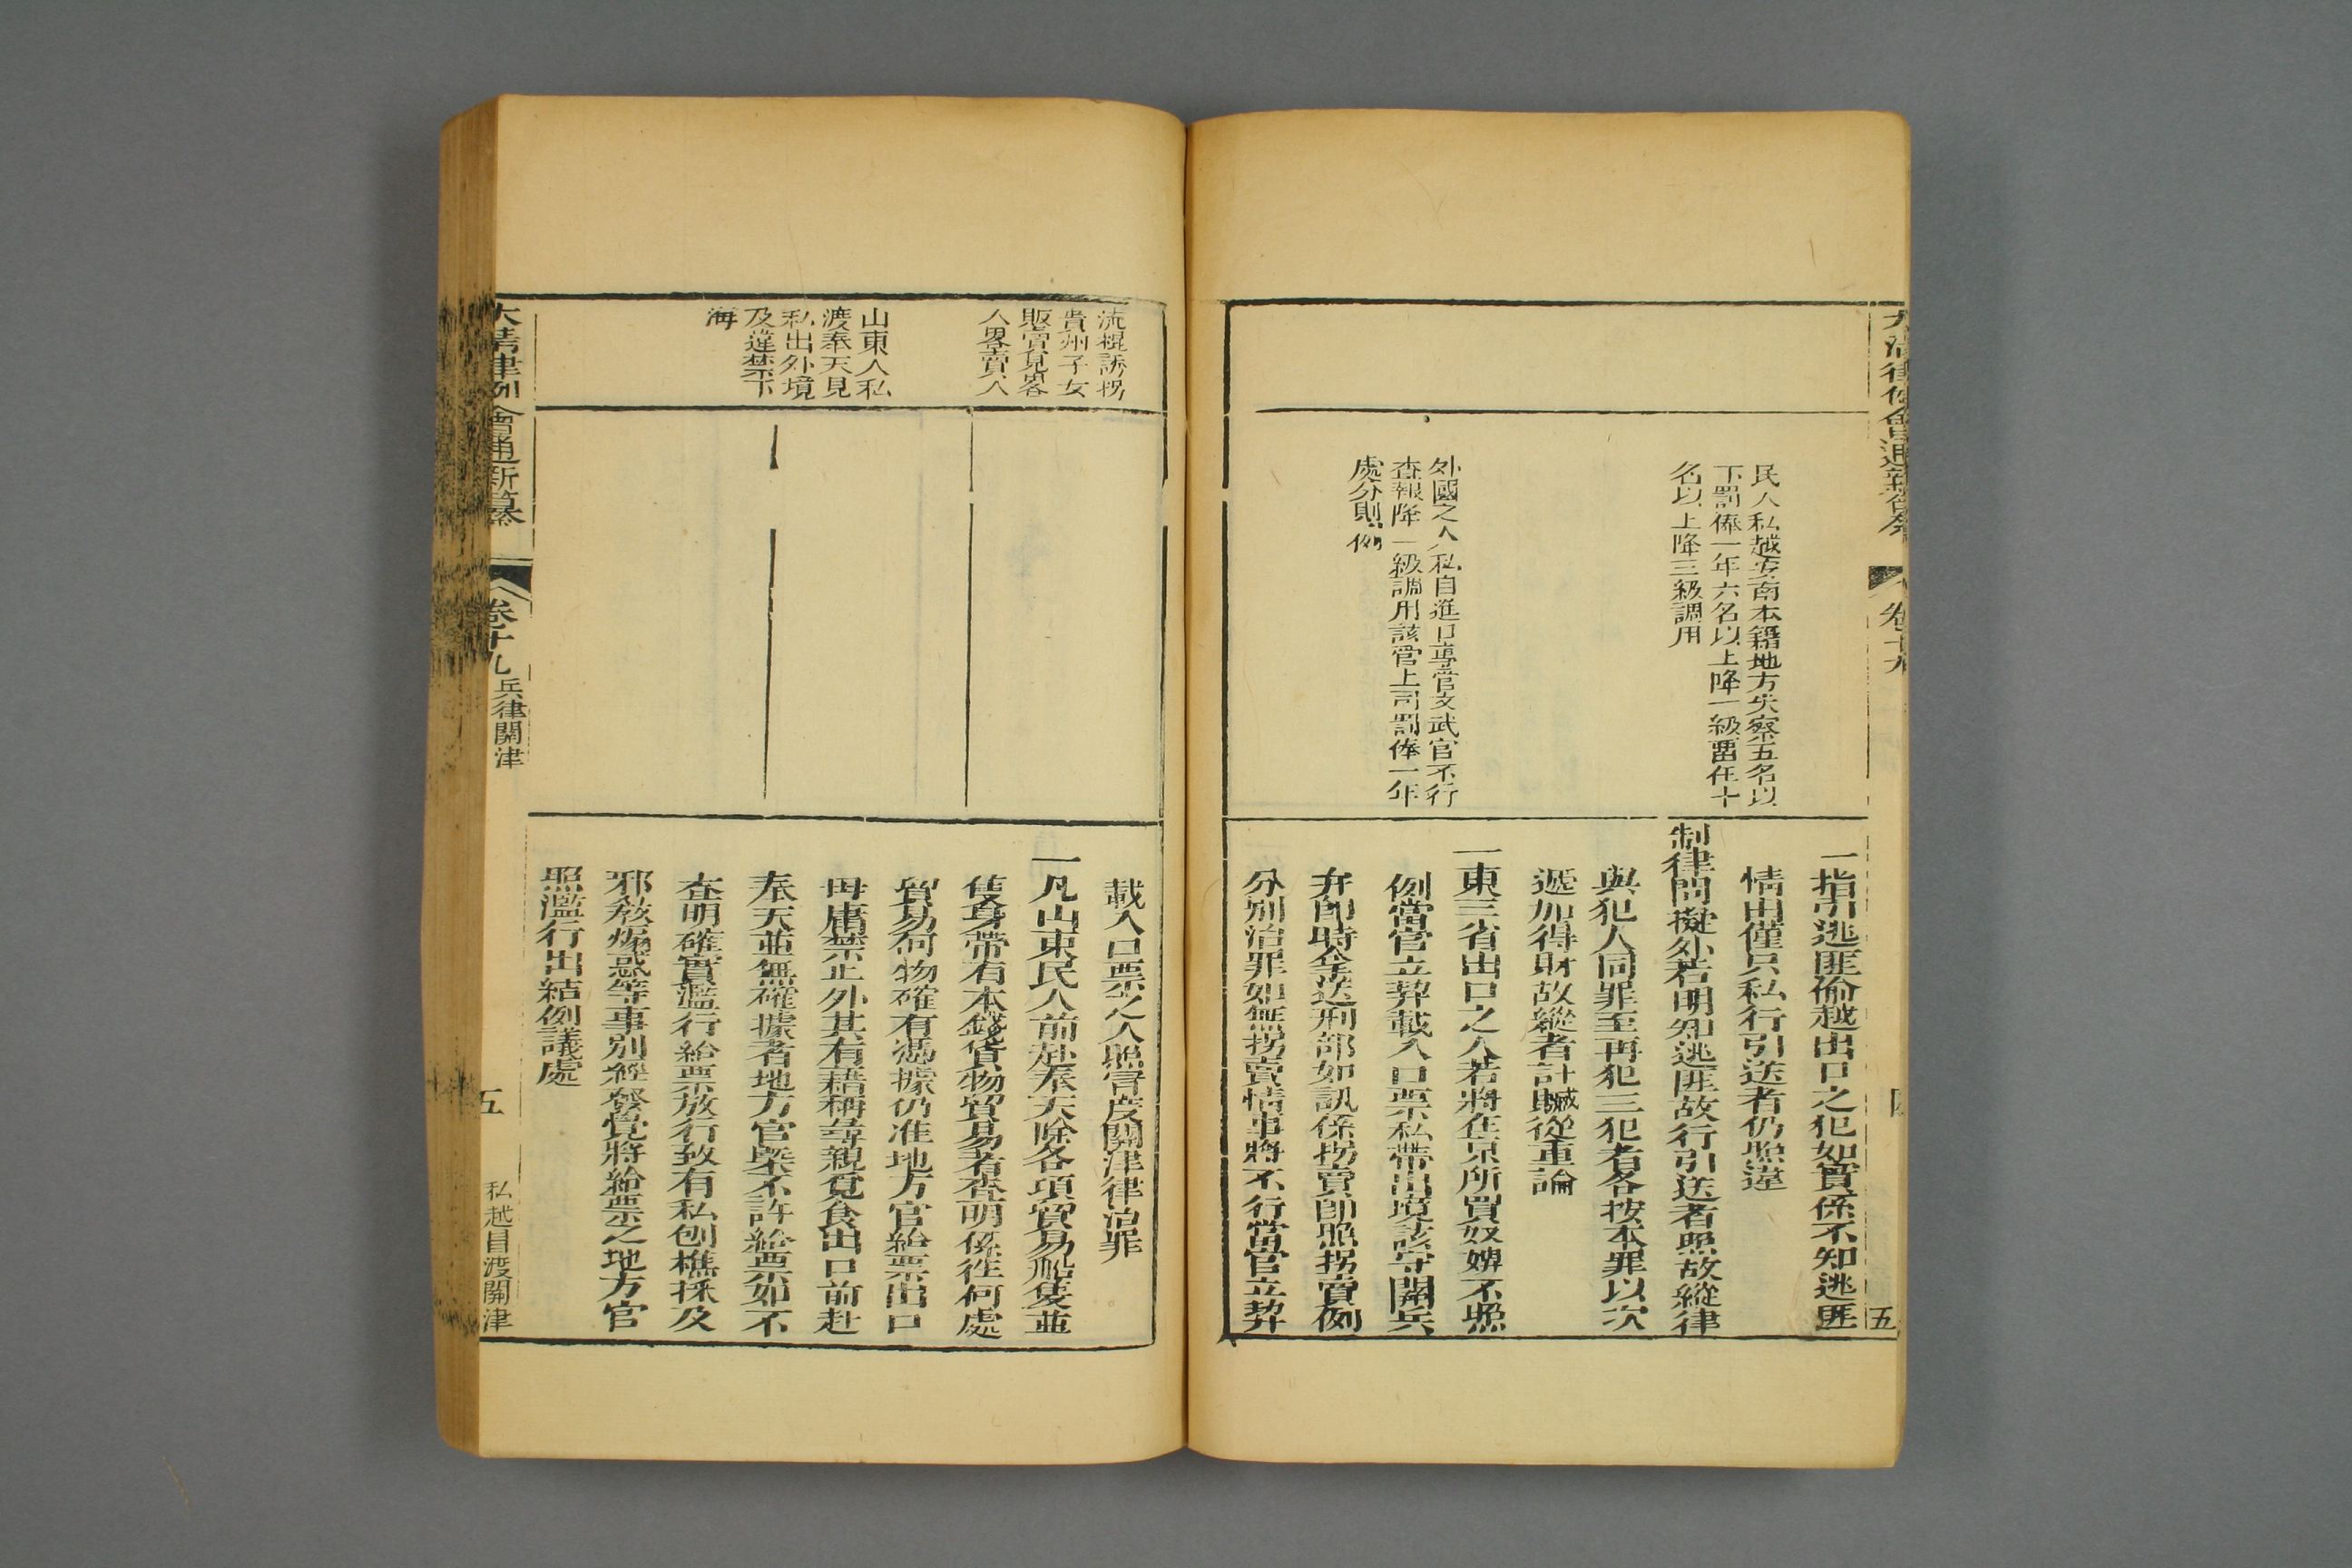 卷十九
五
民人私越安南本籍地方失察五名以
下罰俸一年六名以上降一級畱任十
名以上降三級調用
外國之人私自進口專管文武官不行
查報降一級調用該管上司罰俸一年
處分則例
一指引逃匪偷越出口之犯如實係不知逃匪
情由僅只私行引送者仍照違
制律問擬外若明知逃匪故行引送者照故縱律
與犯人同罪至再犯三犯者各按本罪以次
遞加得財故縱者計贓從重論
一東三省出口之人若將在京所買奴婢不照
例當官立契載入口票私帶出境該守關兵
弁即時拿送刑部如訊係拐賣即照拐賣例
分別治罪如無拐賣情事將不行當官立契
流棍誘拐
貴州子女
販賣見畧
人畧賣人
山東人私
渡奉天見
私出外境
及違禁下
海
載入口票之人照冒度關津律治罪
一凡山東民人前赴奉天除各項貿易船隻並
隻身帶有本錢貨物貿易者查明係徃何處
貿易何物確有憑據仍准地方官給票出口
毋庸禁止外其有藉稱尋親覓食出口前赴
奉天並無確據者地方官槩不許給票如不
查明確實濫行給票放行致有私刨樵採及
邪教煽惑等事別經發覺將給票之地方官
照濫行出結例議處
大清律例會通新纂
卷十九
兵律關津
五
私越冒渡關津